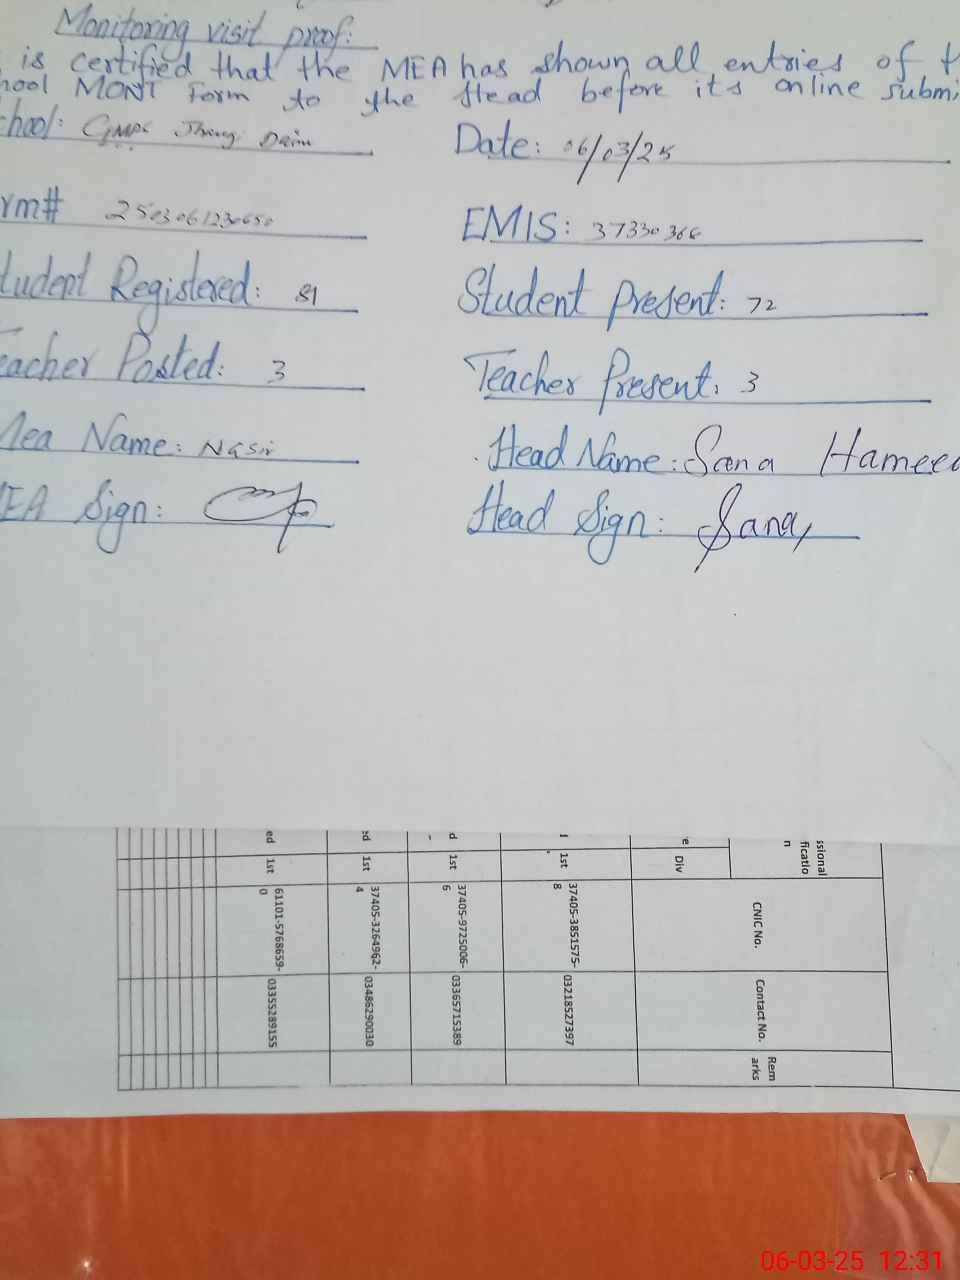 Monitoring visit proof:
is certified that the MEA has shown all entries of t
hool MONT Form to the Head before its online submi
chool: GMPS Jhang Date: 06/03/25
rm# 2503061230650 EMIS: 37330366
tudent Registered: 81 Student Present: 72
eacher Posted: 3 Teacher Present: 3
Mea Name: Nasir Head Name: Sana Hameed
EA Sign: Head Sign: Sana
ssional
ficatio
n
e Div CNIC No. Contact No. Rem
arks
1st 37405-3851575-
8 03218527397
d 1st 37405-9725006-
6 03365715389
ed 1st 37405-3264962-
4 03486290030
ed 1st 61101-5768659-
0 03355289155
06-03-25 12:31